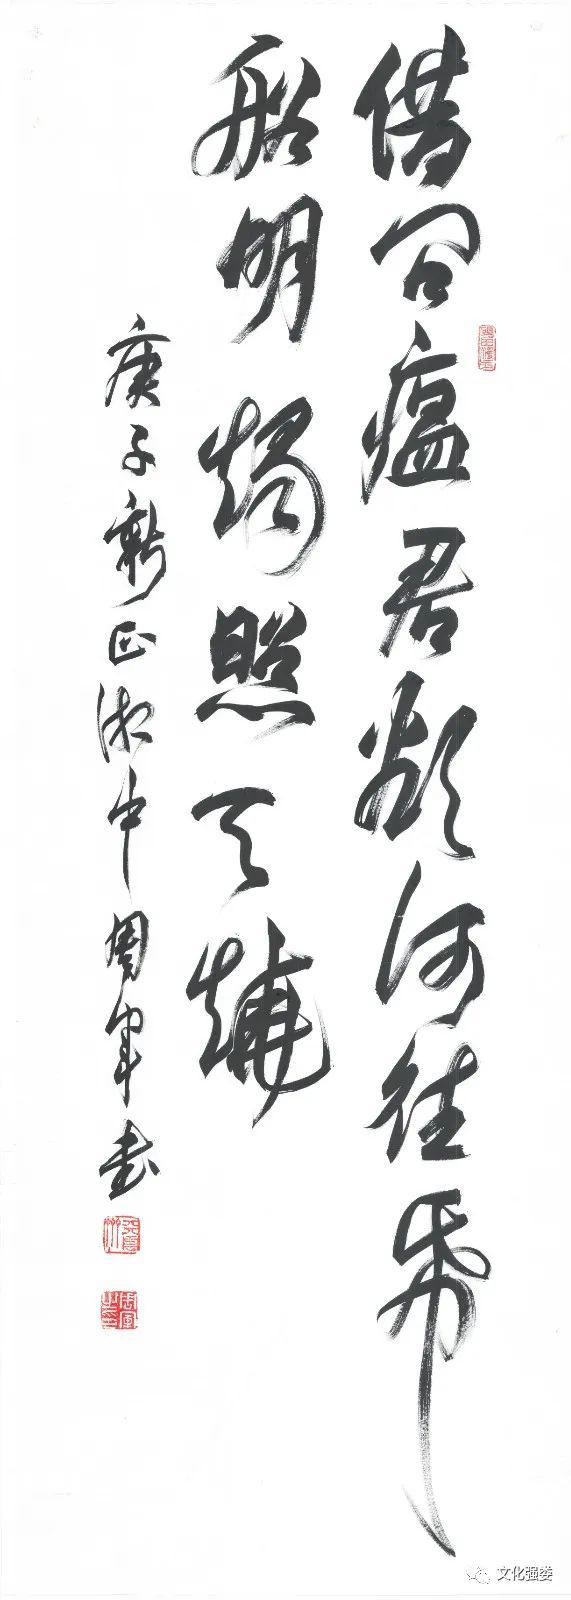 借问瘟君欲何往 纸
船明烛照天烧
庚子新正湘中周军书
文化强娄